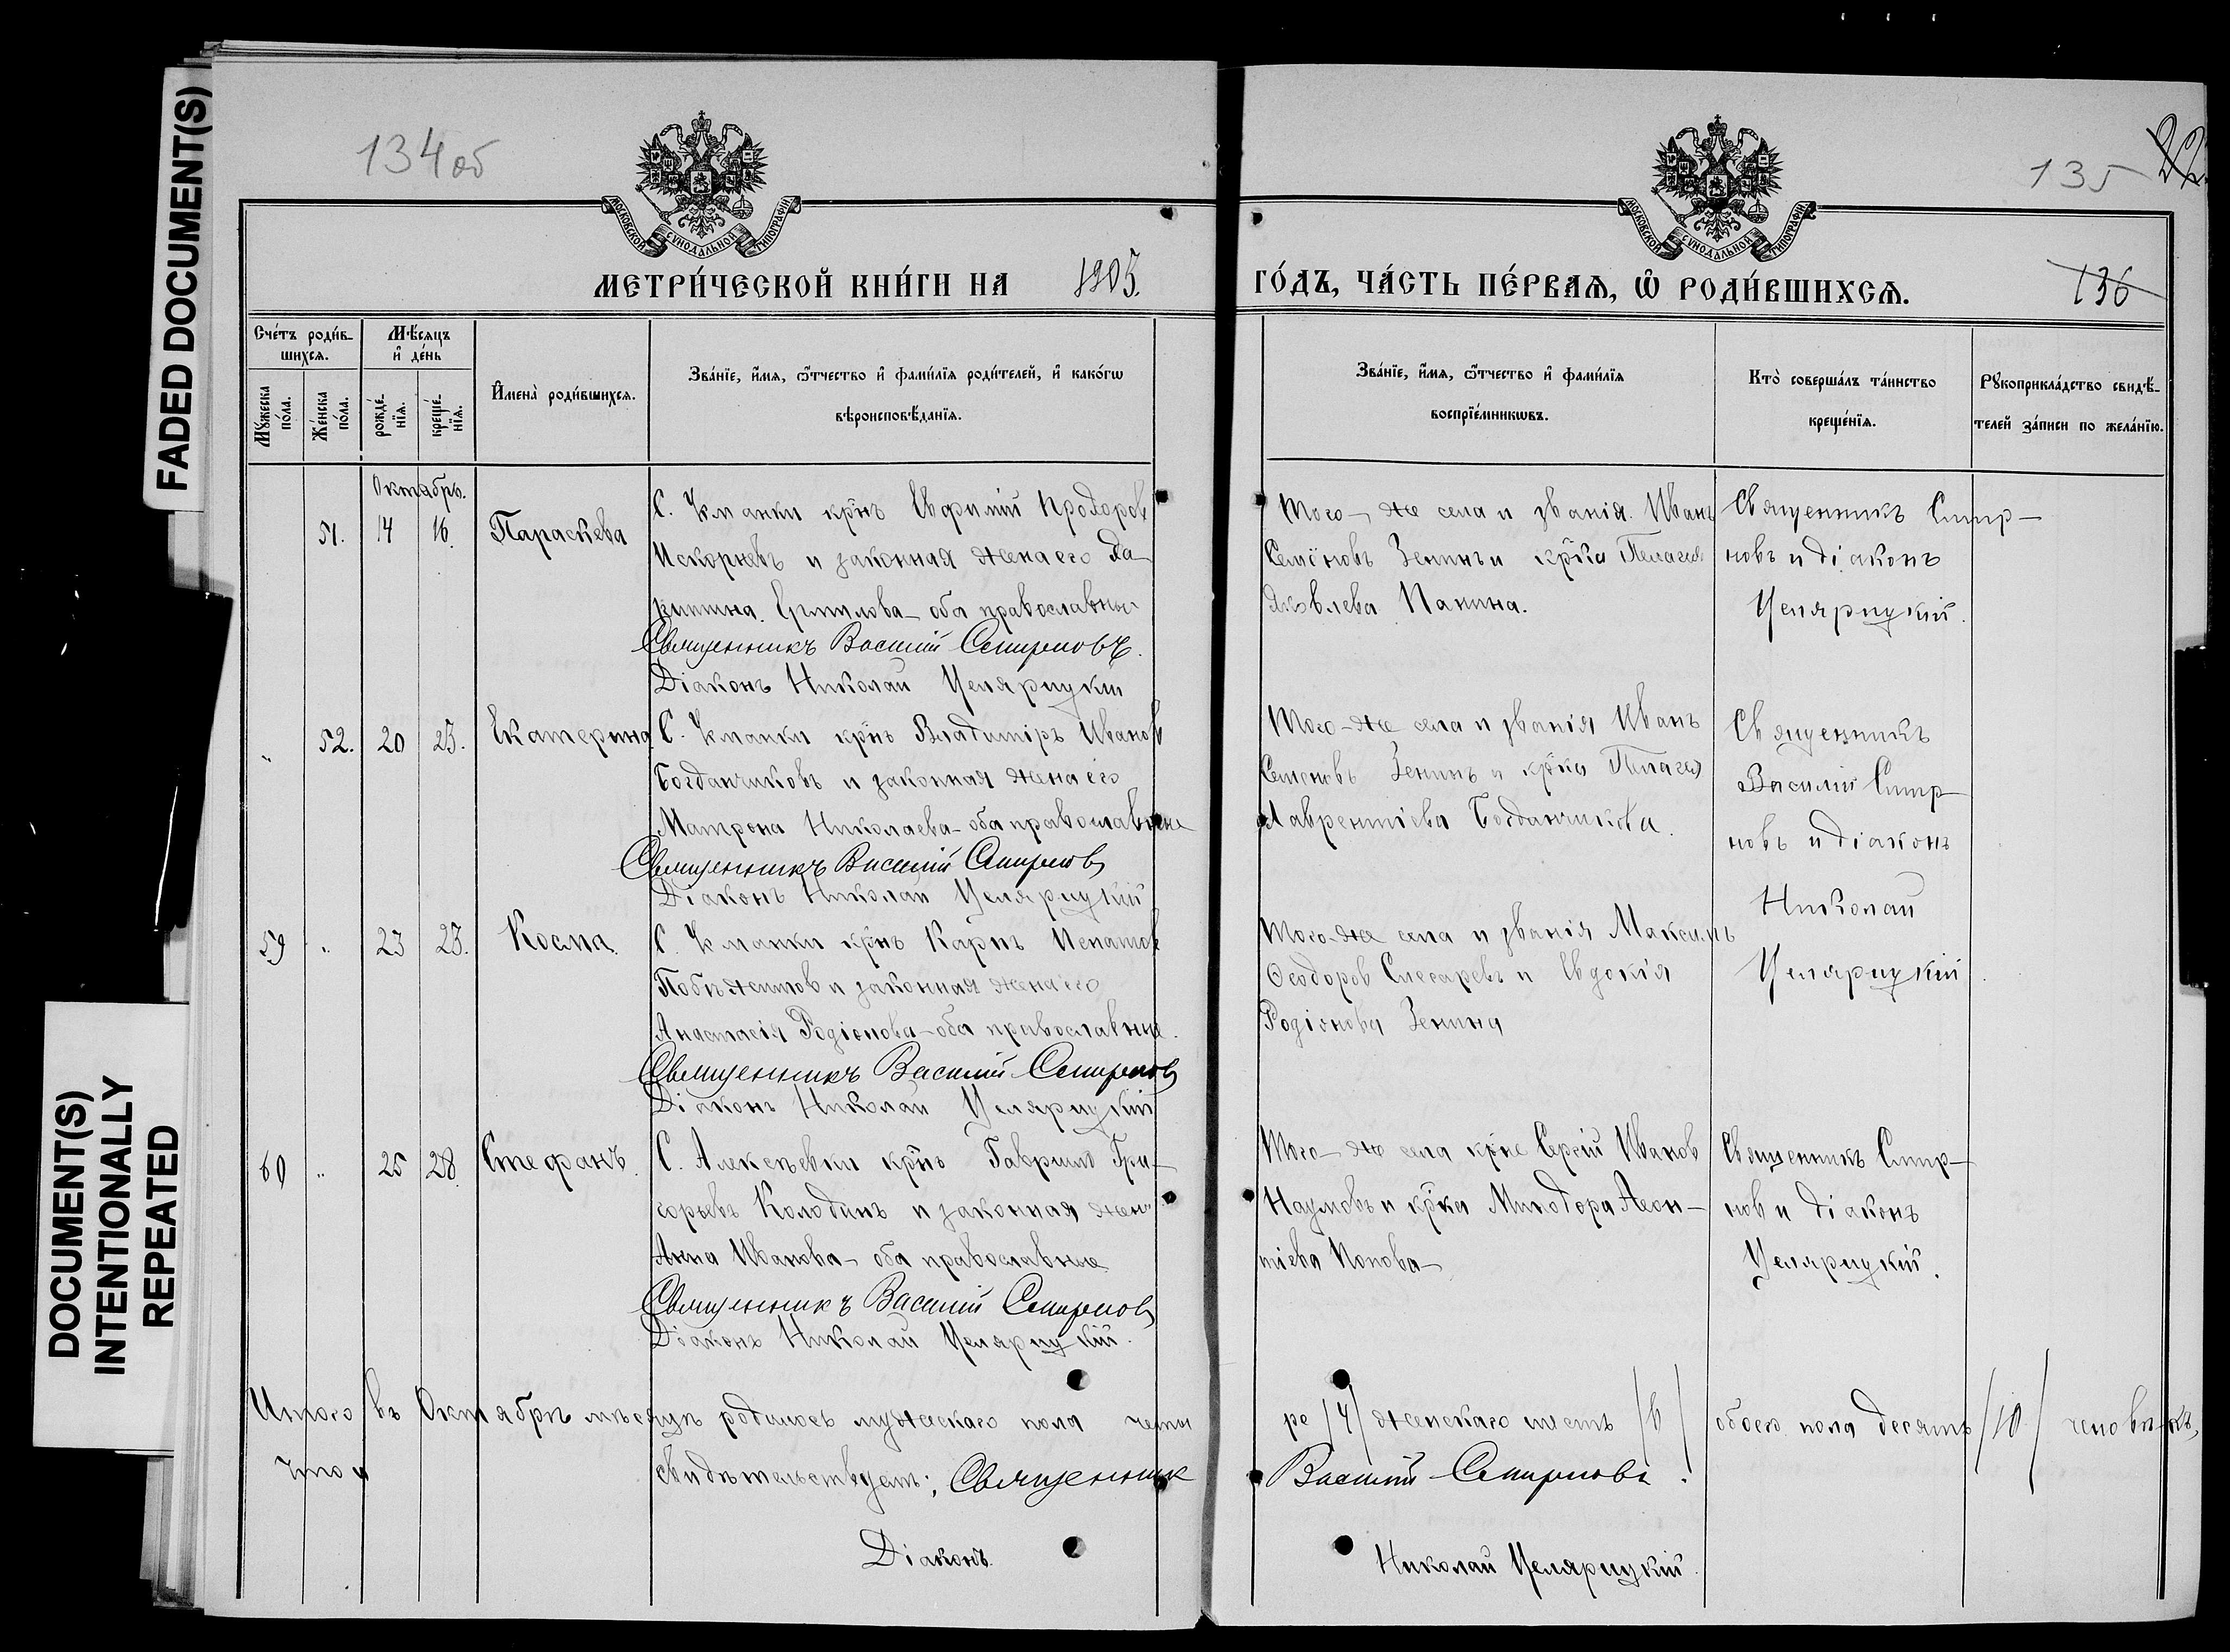 FADED DOCUMENT(S)
DOCUMENT(S)
INTENTIONALLY
REPEATED
134 об
135
МОСКОВСКОЙ СѴНОДАЛЬНОЙ ТИПОГРАФІИ
МОСКОВСКОЙ СѴНОДАЛЬНОЙ ТИПОГРАФІИ
МЕТРИ́ЧЕСКОЙ КНИ́ГИ НА 1905. ГО́ДЪ, ЧА́СТЬ ПЕ́РВАѦ, Ѡ҆ РОДИ́ВШИХСѦ.
136
Сче́тъ роди́в-
шихсѧ.
Мꙋжеска по́ла.
Же́нска по́ла.
Мѣ́сѧцъ
и҆ де́нь
рожде́-
нїѧ.
креще́-
нїѧ.
И҆мена̀ роди́вшихсѧ.
Зва́нїе, и҆́мѧ, ѻ҆́тчество и҆ фами́лїѧ роди́телей, и҆ како́гѡ
вѣроисповѣ́данїѧ.
Зва́нїе, и҆́мѧ, ѻ҆́тчество и҆ фами́лїѧ
воспрїе́мникѡвъ.
Кто̀ соверша́лъ та́инство
креще́нїѧ.
Рꙋкоприкла́дство свидѣ́-
телей за́писи по жела́нїю.
Октябрь.
51. 14 16. Параскева
С. Уманки крнъ Евфимій Продоров
и законная жена его Да
Ермилова - оба православны
Священникъ Василій Смирновъ.
Діаконъ Николай Целярицкій
Того-же села и званія Иванъ
Семеновъ Зенинъ и крка Пелагея
Яковлева Панина.
Священникъ Смир-
новъ и діаконъ
Целярицкій.
" 52. 20 23. Екатерина
С. Уманки крнъ Владиміръ Иванов
Богданчиковъ и законная жена его
Матрона Николаева - оба православные
Священникъ Василій Смирнов
Діаконъ Николай Целярицкій
Того-же села и званія Иванъ
Семеновъ Зенинъ и крка Пелагея
Лаврентіева Богданчикова.
Священникъ
Василій Смир-
новъ и діаконъ
Николай
Целярицкій
59 " 23 23. Косма.
С. Уманки крнъ Карпъ Игнатов
Побѣжимов и законная жена его
Анастасія Родіонова - оба православные.
Священникъ Василій Смирнов
Діаконъ Николай Целярицкій
Того-же села и званія Максимъ
Ѳеодоров Слесаревъ и Евдокія
Родіонова Зенина
60 " 25 28. Стефанъ.
С. Алексѣевки крнъ Гавриилъ Гри-
горьевъ Колодинъ и законная жена
Анна Иванова - оба православные
Священникъ Василій Смирнов
Діаконъ Николай Целярицкій.
Того-же села крне Сергій Иванов
Наумовъ и крка Минодора Леон-
тіева Попова -
Священникъ Смир-
нов и діаконъ
Целярицкій.
Итого въ Октябрѣ мѣсяцѣ родилось мужескаго пола четы
ре /4/ женскаго шесть /6/ обоего пола десять /10/ человѣкъ,
что и свидѣтельствуемъ: Священник
Василій Смирновъ.
Діаконъ
Николай Целярицкій.